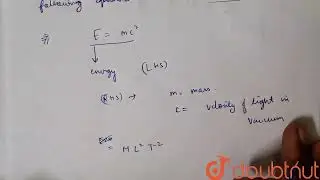 following
E = mc²
energy (LHS)
(RHS) → m = mass
c = velocity of light in
vacuum
= M L² T-2
doubtnut